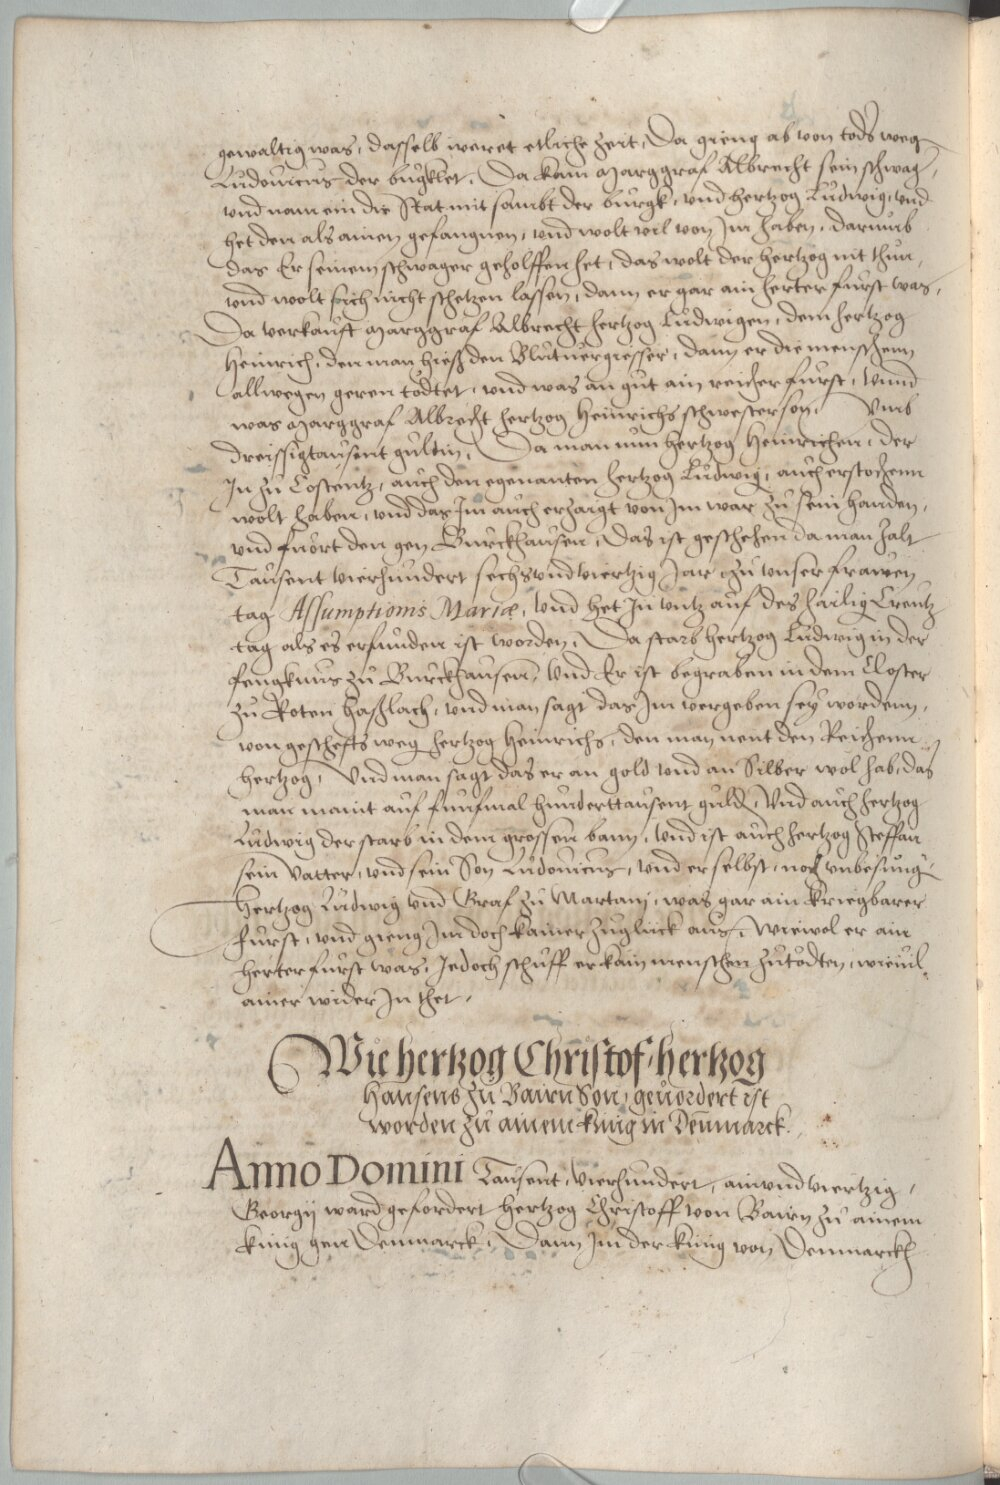 gewaltig was, dasselb weret etliche zeit, Da gieng ab von tods weg
Ludouicus der bugklet, Da kam Marggraf Albrecht sein schwag,
vnd nam ein die Stat mit sambt der burgk, vnd hertzog Ludwig, vnd
het den als ainen gefangnen, vnd wolt vil von Jm haben, darumb
das Er seinem schwager geholffen het, das wolt der hertzog nit thun,
vnd wolt sich nicht schetzen lassen, dann er gar ain herter furst was,
Da verkauft Marggraf Albrecht hertzog Ludwigen, dem hertzog
Heinrich, den man hieß den Blutuergiesser, dann er die menschenn
allwegen geren tödtet, vnd was an gut ain reicher furst, Vnnd
was Marggraf Albrecht hertzog Heinrichs schwester son, Vmb
dreissigtausent guldin, Da man nun hertzog Heinrichen, der
Jn zu Costentz, auch den egenanten hertzog Ludwig, auch erstochenn
wolt haben, vnd das Jm auch erzaigt von Jm war zu sein handen,
vnd fuort den gen Burckhausen, Das ist geschehen da man zalt
Tausent vierhundert sechsvndviertzig Jar, zu vnser frawen
tag Assumptionis Mariæ, vnd het Jn vntz auf des hailig Creutz
tag als es erfunden ist worden, Da starb hertzog Ludwig in der
fengknus zu Burckhausen, Vnd Er ist begraben in dem Closter
zu Roten Haßlach, vnd man sagt das Jm vergeben sey wordenn,
von geschefts weg hertzog Heinrichs, den man nent den Reichenn
hertzog, Vnd man sagt das er an gold vnd an Silber wol hab, das
man maint auf funfmal hunderttausent guld, Vnd auch hertzog
Ludwig der starb in dem grossen bann, vnd ist auch hertzog Steffan
sein Vatter, vnd sein Son Ludouicus, vnd er selbst, noch vnbesung
Hertzog Ludwig vnd Graf zu Martani, was gar ain kriegbarer
Furst, vnd gieng Jm doch kainer zugluck aus, Wiewol er ain
herter furst was, Jedoch schuff er kain menschen zutödten, wieuil
ainer wider Jn thet,
Wie hertzog Christof, hertzog
Hansens zu Bairn Son, geuordert ist
worden zu ainem kunig in Denmarck.
Anno Domini Tausent, vierhundert, ainvndviertzig,
Georgij ward gefordert hertzog Christoff von Bairn zu ainem
kunig gen Denmarck, Dann Jm der kunig von Denmarckh